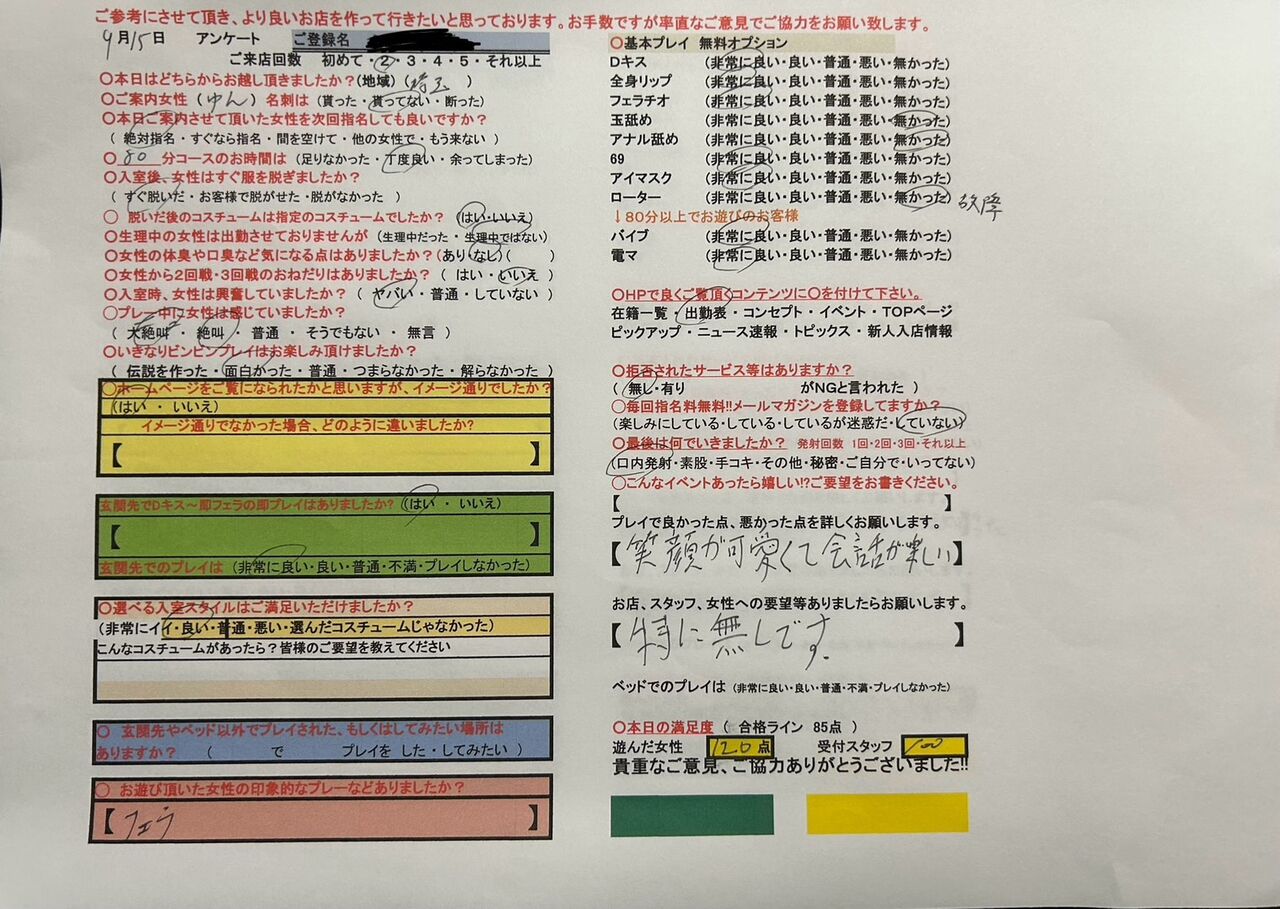 ご参考にさせて頂き、より良いお店を作って行きたいと思っております。お手数ですが率直なご意見でご協力をお願い致します。
9月15日 アンケート ご登録名
ご来店回数 初めて・2・3・4・5・それ以上
〇本日はどちらからお越し頂きましたか?(地域)(埼玉 )
〇ご案内女性(ゆん)名刺は(貰った・貰ってない・断った)
〇本日ご案内させて頂いた女性を次回指名しても良いですか?
( 絶対指名・すぐなら指名・間を空けて・他の女性で・もう来ない )
〇 80 分コースのお時間は(足りなかった・丁度良い・余ってしまった)
〇入室後、女性はすぐ服を脱ぎましたか?
(すぐ脱いだ・お客様で脱がせた・脱がなかった )
〇 脱いだ後のコスチュームは指定のコスチュームでしたか?(はい・いいえ)
〇生理中の女性は出勤させておりませんが(生理中だった・生理中ではない)
〇女性の体臭や口臭など気になる点はありましたか?(あり・なし)( )
〇女性から2回戦・3回戦のおねだりはありましたか?( はい・いいえ )
〇入室時、女性は興奮していましたか?( ヤバい・普通・していない )
〇プレー中に女性は感じていましたか?
( 大絶叫・ 絶叫 ・ 普通 ・ そうでもない ・ 無言 )
〇いきなりビンビンプレイはお楽しみ頂けましたか?
( 伝説を作った・面白かった・普通・つまらなかった・解らなかった )
〇ホームページをご覧になられたかと思いますが、イメージ通りでしたか?
(はい ・ いいえ)
イメージ通りでなかった場合、どのように違いましたか?
【 】
玄関先でDキス~即フェラの即プレイはありましたか?(はい ・ いいえ)
【 】
玄関先でのプレイは (非常に良い・良い・普通・不満・プレイしなかった)
〇選べる入室スタイルはご満足いただけましたか?
(非常にイイ・良い・普通・悪い・選んだコスチュームじゃなかった)
こんなコスチュームがあったら?皆様のご要望を教えてください
〇 玄関先やベッド以外でプレイされた、もしくはしてみたい場所は
ありますか? ( で プレイを した・してみたい )
〇 お遊び頂いた女性の印象的なプレーなどありましたか?
【 フェラ 】
〇基本プレイ 無料オプション
Dキス (非常に良い・良い・普通・悪い・無かった)
全身リップ (非常に良い・良い・普通・悪い・無かった)
フェラチオ (非常に良い・良い・普通・悪い・無かった)
玉舐め (非常に良い・良い・普通・悪い・無かった)
アナル舐め (非常に良い・良い・普通・悪い・無かった)
69 (非常に良い・良い・普通・悪い・無かった)
アイマスク (非常に良い・良い・普通・悪い・無かった)
ローター (非常に良い・良い・普通・悪い・無かった) 故障
↓80分以上でお遊びのお客様
バイブ (非常に良い・良い・普通・悪い・無かった)
電マ (非常に良い・良い・普通・悪い・無かった)
〇HPで良くご覧頂くコンテンツに〇を付けて下さい。
在籍一覧・出勤表・コンセプト・イベント・TOPページ
ピックアップ・ニュース速報・トピックス・新人入店情報
〇拒否されたサービス等はありますか?
( 無し・有り がNGと言われた )
〇毎回指名料無料!!メールマガジンを登録してますか?
(楽しみにしている・している・しているが迷惑だ・していない)
〇最後は何でいきましたか? 発射回数 1回・2回・3回・それ以上
(口内発射・素股・手コキ・その他・秘密・ご自分で・いってない)
〇こんなイベントあったら嬉しい!?ご要望をお書きください。
【 】
プレイで良かった点、悪かった点を詳しくお願いします。
【笑顔が可愛くて会話が楽しい】
お店、スタッフ、女性への要望等ありましたらお願いします。
【特に無しです。】
ベッドでのプレイは (非常に良い・良い・普通・不満・プレイしなかった)
〇本日の満足度 ( 合格ライン 85点 )
遊んだ女性 120点 受付スタッフ 100
貴重なご意見、ご協力ありがとうございました!!